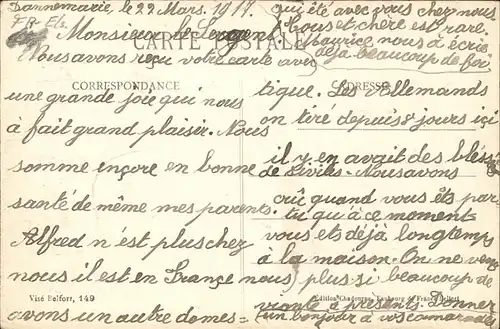 Dannemarie, le 22 Mars. 1917.
Monsieur le Sergent
CARTE POSTALE
Nous avons reçu votre carte avec
CORRESPONDANCE
une grande joie qui nous
à fait grand plaisir. Nous
somme ençore en bonne
santé de même mes parents
Alfred n'est plus chez
nous il est en France nous
Visé Belfort, 149
avons un autre domes=
qui été avec vous chez nous
tous et chère est rare.
Maurice nous à écrie
déjà beaucoup de foi
ADRESSE
tique. Les Allemands
on tiré depuis 8 jours içi
il y en avait des bléssé
de Civils. Nous avons
crû quand vous êts par-
tu qu'à ce moment
vous ets déjà longtemp
à la maison. On ne veng
plus si beaucoup de
Edition Chadourne, Faubourg de France Belfort
viante à présents. Donner
un bonjour à vos camarades